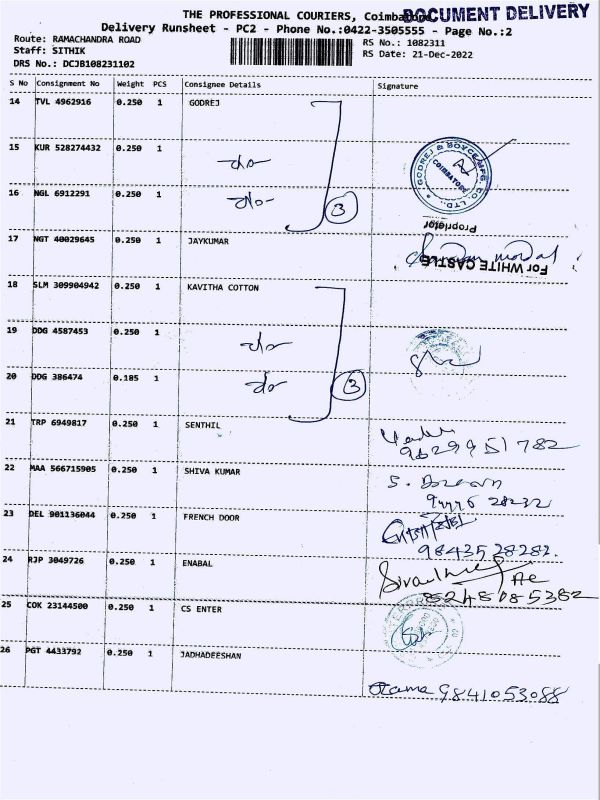 THE PROFESSIONAL COURIERS, Coimbatore
DOCUMENT DELIVERY
Delivery Runsheet - PC2 - Phone No.:0422-3505555 - Page No.:2
Route: RAMACHANDRA ROAD RS No.: 1082311
Staff: SITHIK RS Date: 21-Dec-2022
DRS No.: DCJB108231102
S No Consignment No Weight PCS Consignee Details Signature
14 TVL 4962916 0.250 1 GODREJ
15 KUR 528274432 0.250 1 -do-
16 NGL 6912291 0.250 1 -do- 3
GODREJ & BOYCE MFG CO. LTD.
COIMBATORE
Proprietor
17 NGT 40029645 0.250 1 JAYKUMAR
For WHITE CASTLE
18 SLM 309904942 0.250 1 KAVITHA COTTON
19 DDG 4587453 0.250 1 -do-
20 DDG 386474 0.185 1 -do- 3
21 TRP 6949817 0.250 1 SENTHIL
9629951782
22 MAA 566715905 0.250 1 SHIVA KUMAR
23 DEL 901136044 0.250 1 FRENCH DOOR
9843528282.
24 RJP 3049726 0.250 1 ENABAL
25 COK 23144500 0.250 1 CS ENTER
26 PGT 4433792 0.250 1 JADHADEESHAN
9841053088